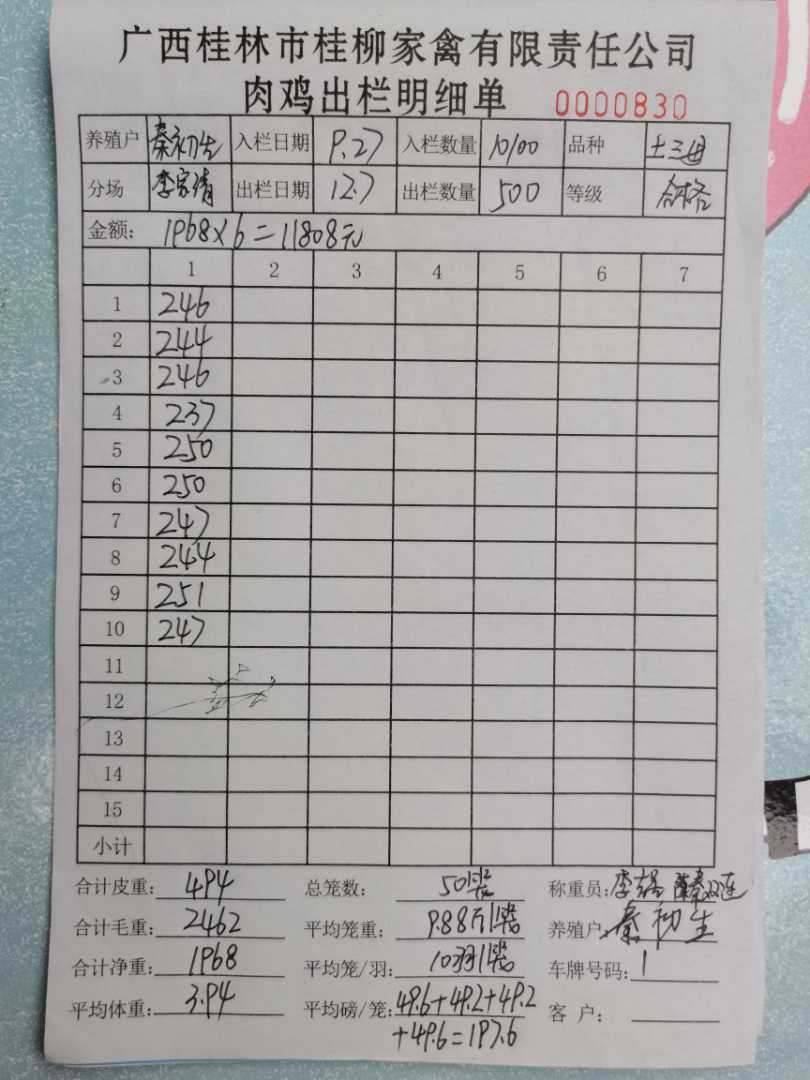 广西桂林市桂柳家禽有限责任公司
肉鸡出栏明细单 0000830
养殖户 秦初生 入栏日期 9.27 入栏数量 10100 品种 土三母
分场 出栏日期 12.7 出栏数量 500 等级 合格
金额: 1968×6=11808元
1 2 3 4 5 6 7
1 246
2 244
3 246
4 237
5 250
6 250
7 247
8 244
9 251
10 247
11
12
13
14
15
小计
合计皮重: 494 总笼数: 50 称重员:
合计毛重: 2462 平均笼重: 9.88斤/ 养殖户: 秦初生
合计净重: 1968 平均笼/羽: 10羽/ 车牌号码:
平均体重: 3.94 平均磅/笼: 49.6+49.2+49.2 客户:
+49.6=197.6